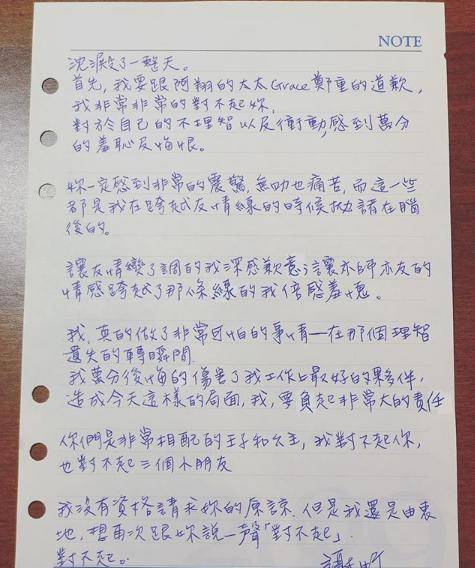 NOTE
沈澱了一整天。
首先，我要跟阿翔的太太Grace鄭重的道歉，
我非常非常的對不起妳，
對於自己的不理智以及衝動，感到萬分
的羞恥及悔恨。
妳一定感到非常的震驚，無助也痛苦，而這一些
都是我在跨越友情線的時候拋諸在腦
後的。
讓友情變了調的我深感歉意；讓亦師亦友的
情感跨越了那條線的我倍感羞愧。
我，真的做了非常可怕的事情—在那個理智
遺失的轉瞬間
我萬分後悔的傷害了我工作上最好的夥伴，
造成今天這樣的局面，我，要負起非常大的責任
你們是非常相配的王子和公主，我對不起你，
也對不起三個小朋友
我沒有資格請求妳的原諒，但是我還是由衷
地，想再次跟妳說一聲「對不起」．
對不起。